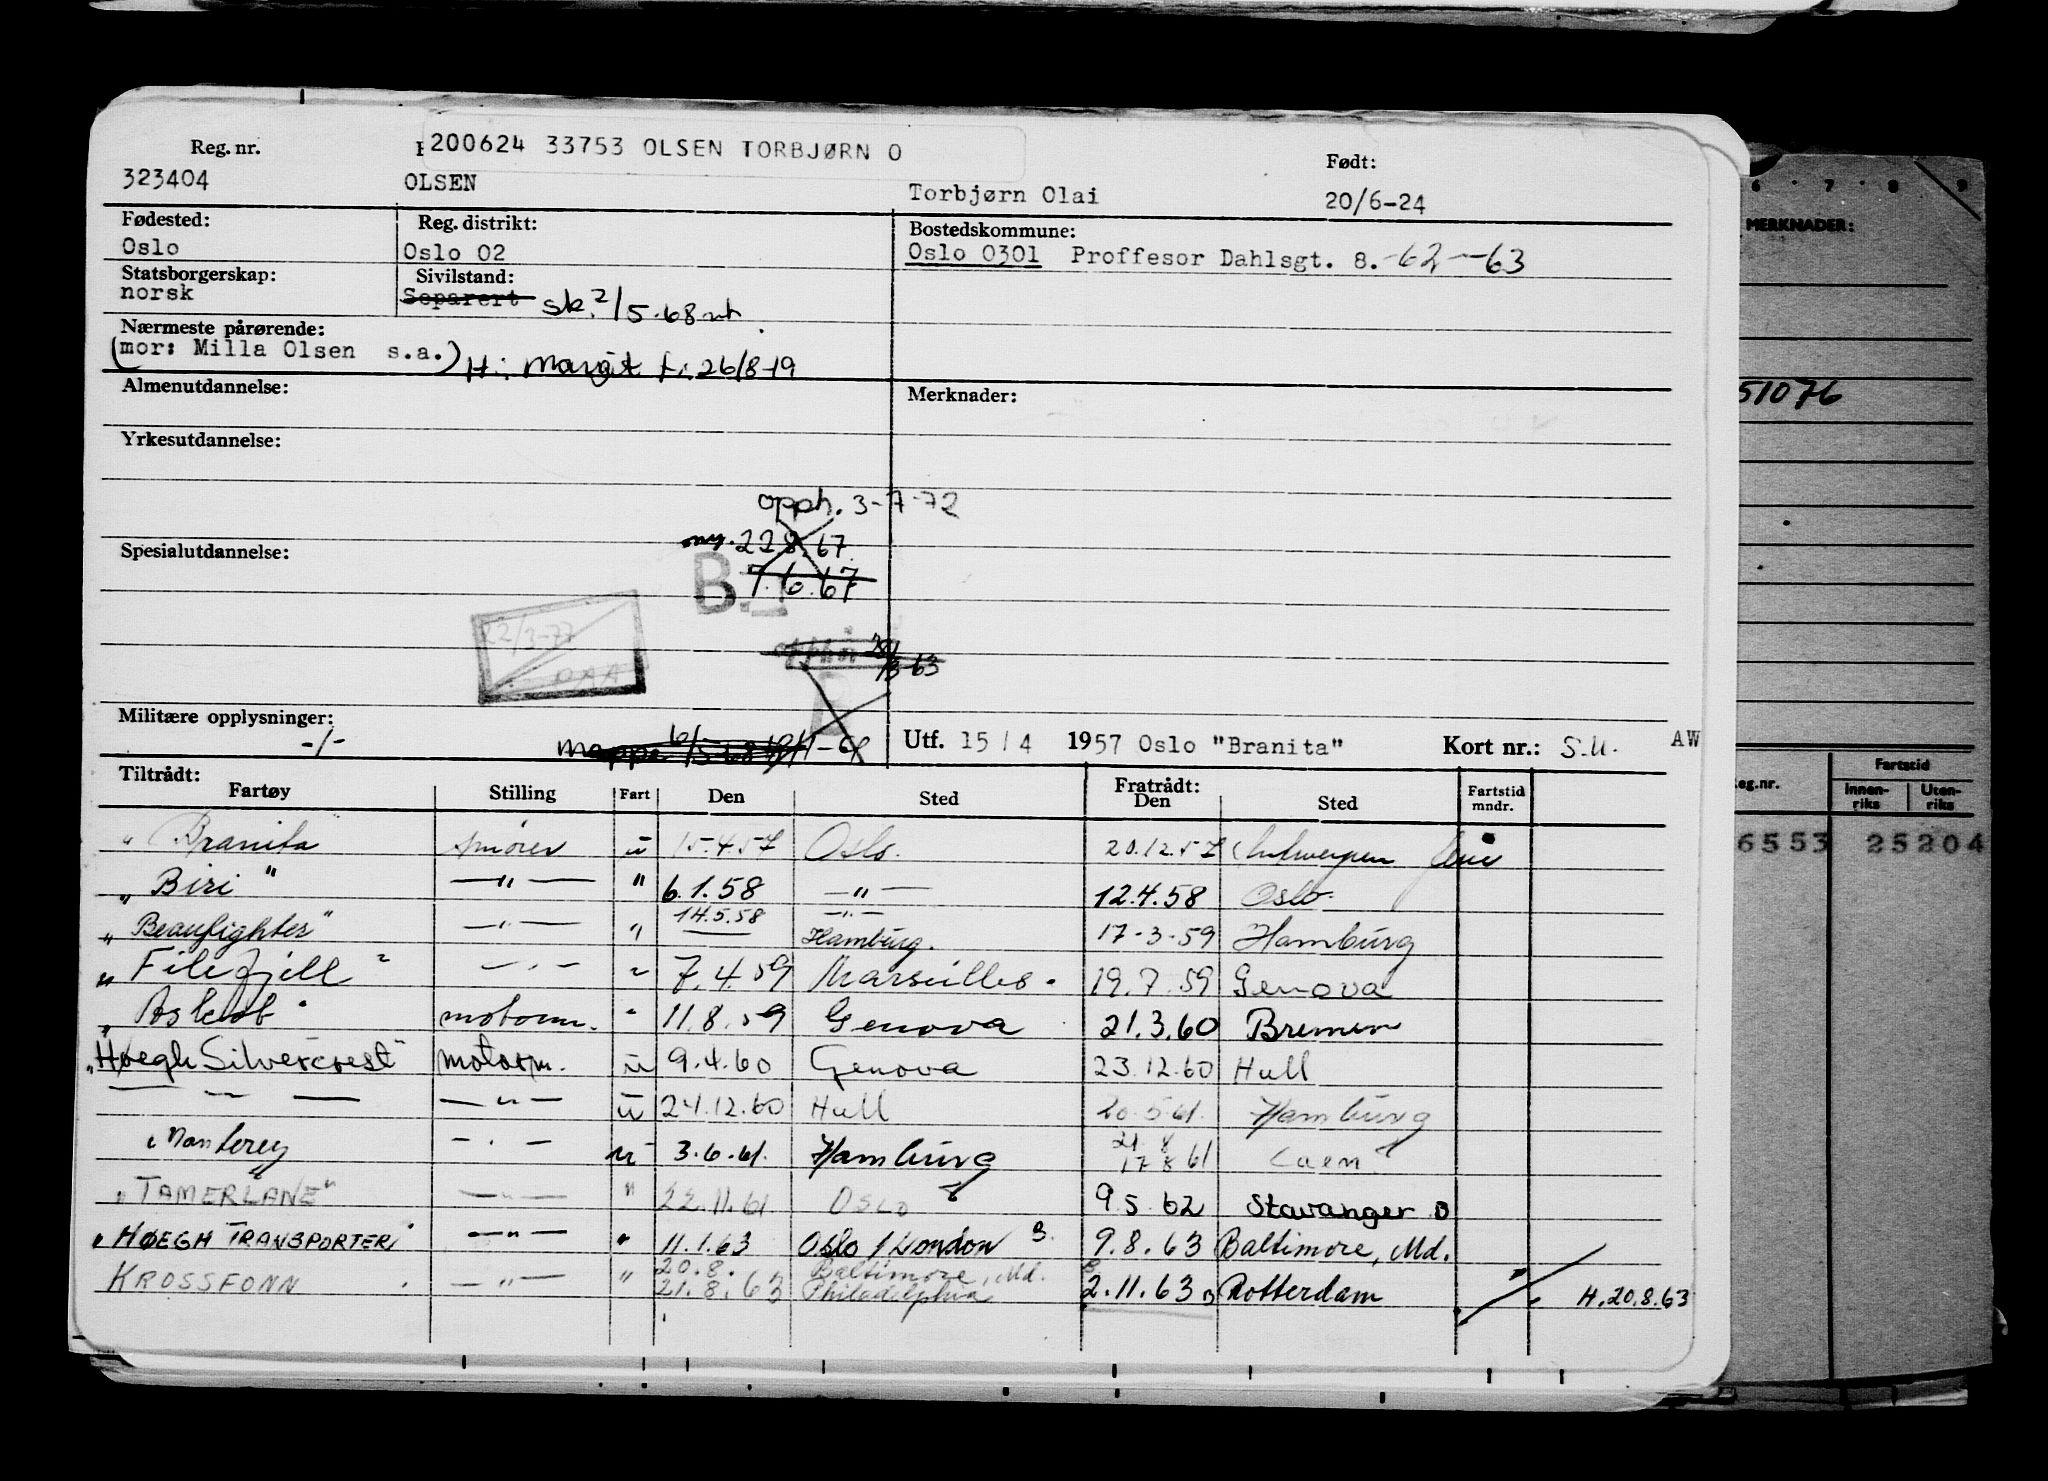 Reg. nr.
200624 33753 OLSEN TORBJØRN O
Født:
323404
OLSEN
Torbjørn Olai
20/6-24
Fødested:
Reg. distrikt:
Bostedskommune:
Oslo
Oslo 02
Oslo 0301 Proffesor Dahlsgt. 8. -62 -63
Statsborgerskap:
Sivilstand:
norsk
Separert sk. 2/5.68
Nærmeste pårørende:
(mor: Milla Olsen s.a.) H: Margit f. 26/8-19
Almenutdannelse:
Merknader:
Yrkesutdannelse:
opph. 3-7-72
ny. 22 8.67
Spesialutdannelse:
B.1 7.6.67
22/3-77
28/3-63
Militære opplysninger:
-/-
Mappe
Utf. 15/4 1957 Oslo "Branita"
Kort nr.: S.U. AW
Tiltrådt: Fartøy Stilling Fart Den Sted Fratrådt: Den Sted Fartstid mndr.
"Branita" smører u 15.4.57 Oslo. 20.12.57 Antwerpen
"Biri" —"— " 6.1.58 —"— 12.4.58 Oslo.
"Beaufighter" —"— " 14.5.58 —"— Hamburg. 17-3-59 Hamburg
"Filefjell" —"— " 7.4.59 Marseilles. 19.7.59 Genova
"Askot" motorm. " 11.8.59 Genova 21.3.60 Bremen
"Høegh Silvercrest" motorm. u 9.4.60 Genova 23.12.60 Hull
—"— —"— u 24.12.60 Hull 20.5.61. Hamburg
"Monterey —"— u 3.6.61. Hamburg 21 8 17 8 61 Caen
"TAMERLANE" —"— " 22.11.61 OSLO 9.5.62 Stavanger B
"HØEGH TRANSPORTER" —"— " 11.1.63 Oslo / London B. 9.8.63 Baltimore, Md.
KROSSFONN —"— " 20.8. 21.8.63 Baltimore, Md. Philadelphia B 2.11.63 B Rotterdam H. 20.8.63
6 7 8 9
MERKNADER:
51076
eg.nr.
Fartstid
Innenriks
Utenriks
6553 25204